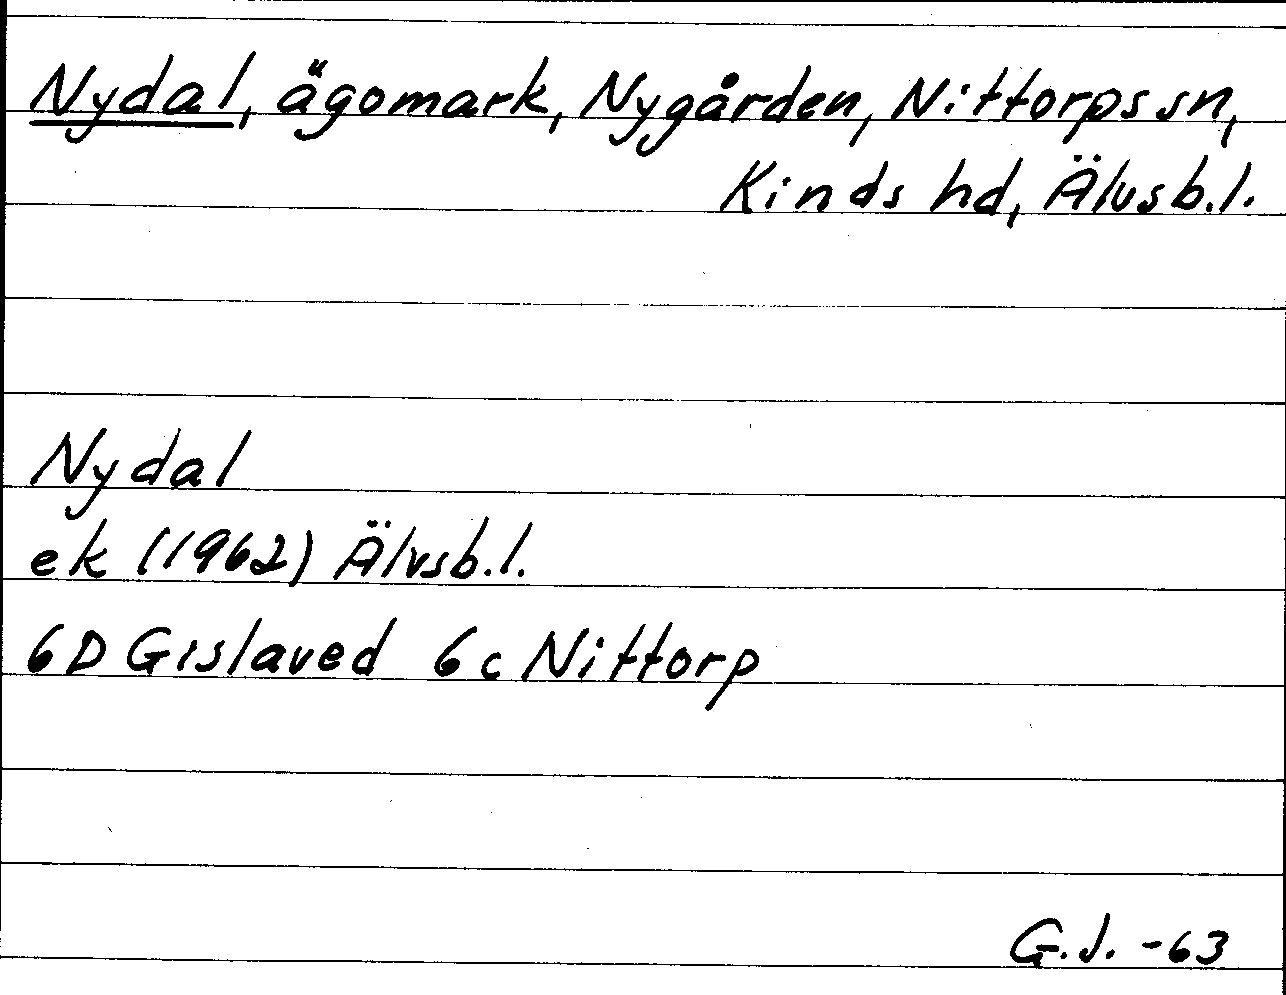 Nydal, ägomark, Nygården, Nittorps sn,
Kinds hd, Älvsb.l.
Nydal
ek (1962) Älvsb.l.
6D Gislaved 6c Nittorp
G.J. -63